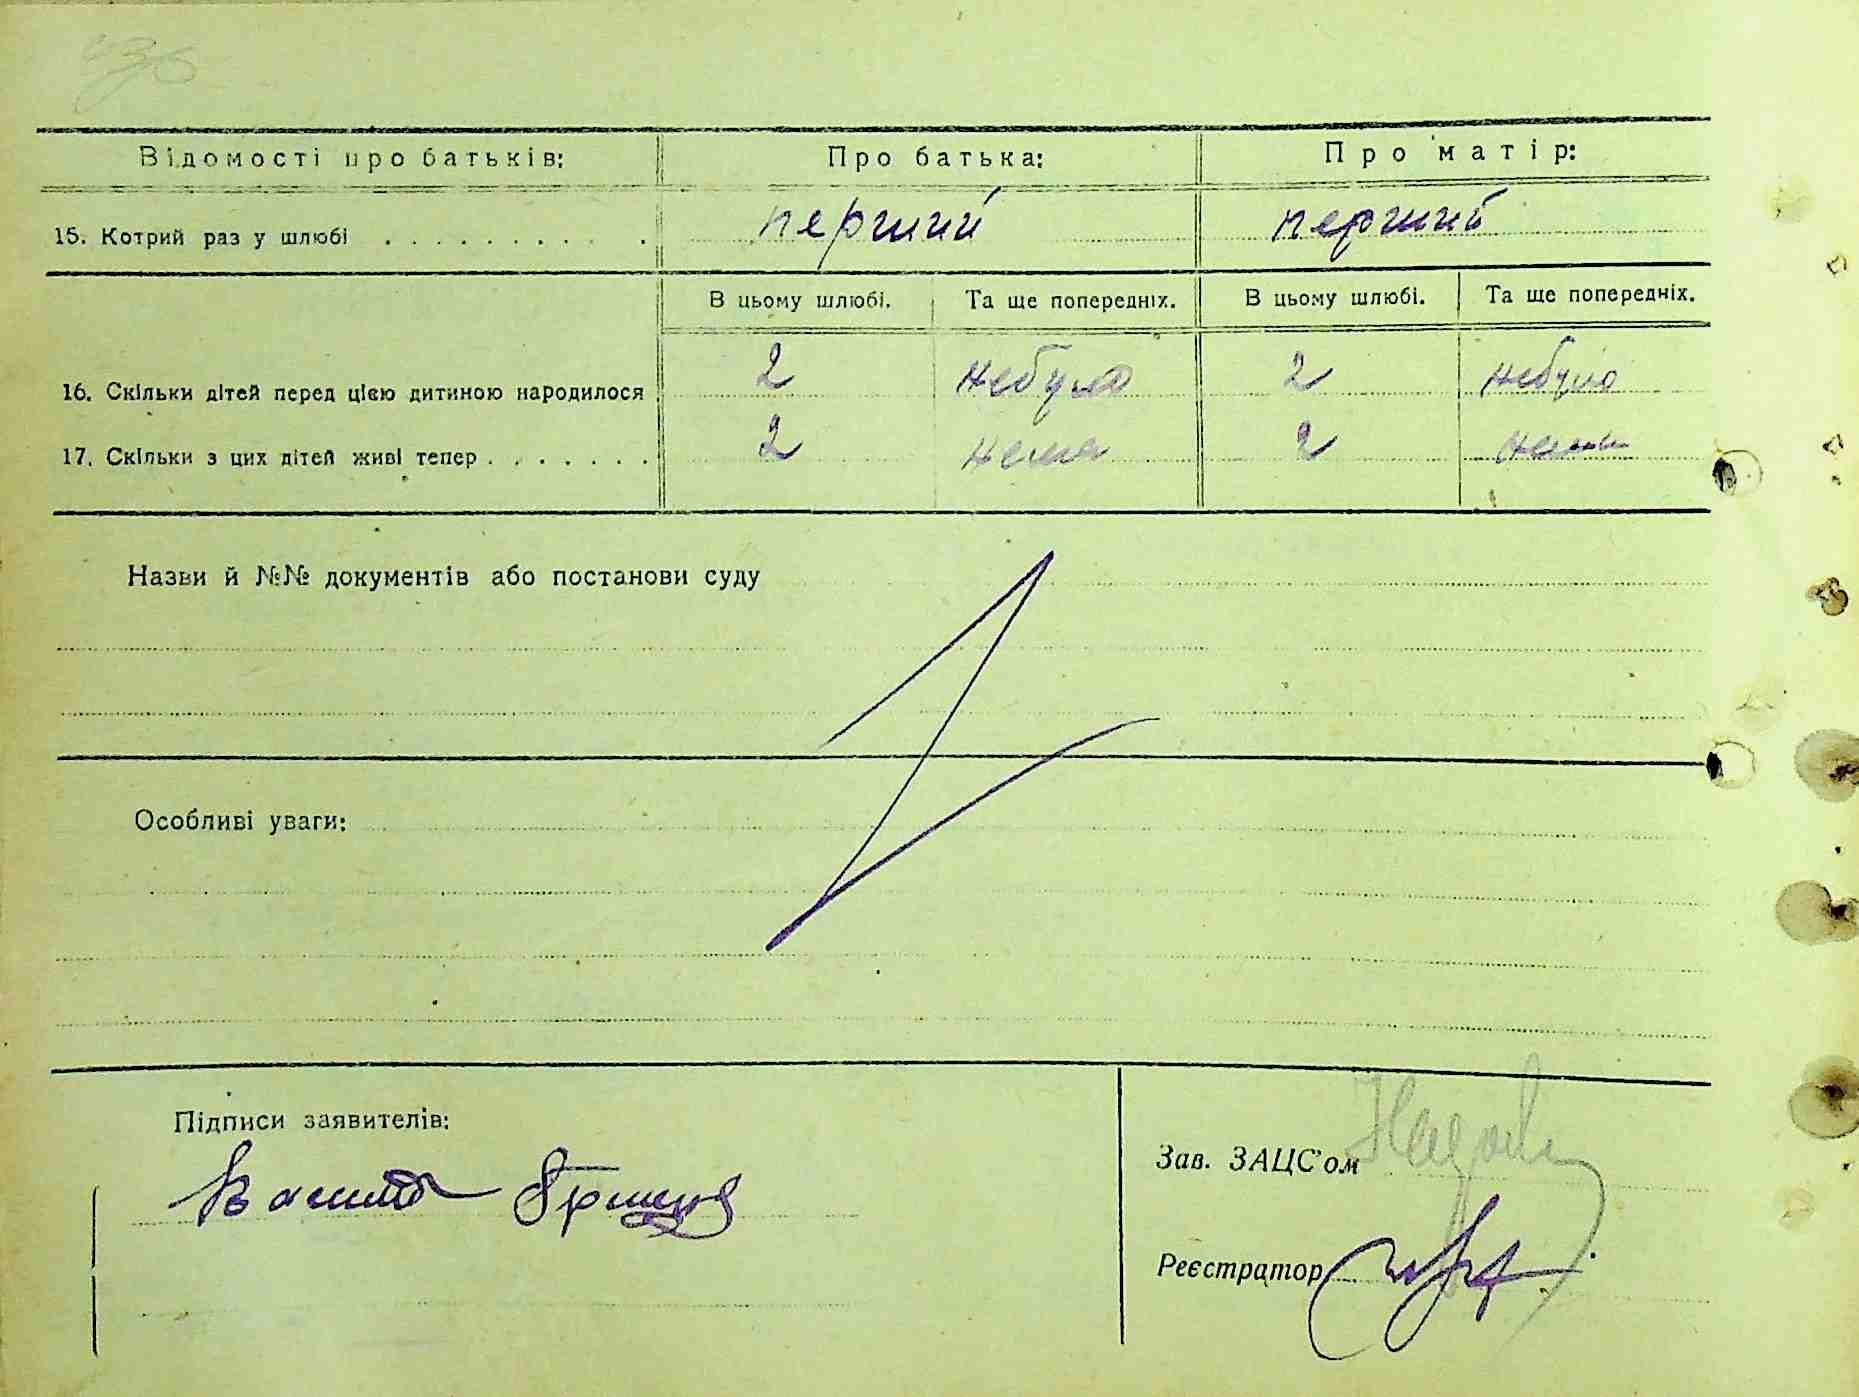 Відомості про батьків: Про батька: Про матір:
15. Котрий раз у шлюбі . . . . . . . . . . перший перший
В цьому шлюбі. Та ще попередніх. В цьому шлюбі. Та ще попередніх.
16. Скільки дітей перед цією дитиною народилося 2 небуло 2 небуло
17. Скільки з цих дітей живі тепер . . . . . . . 2 нема 2 нема
Назви й №№ документів або постанови суду
Особливі уваги:
Підписи заявителів:
Зав. ЗАЦС'ом
Реєстратор